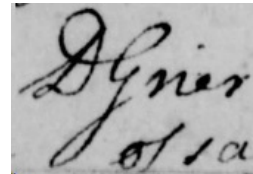 D Grier
of sa